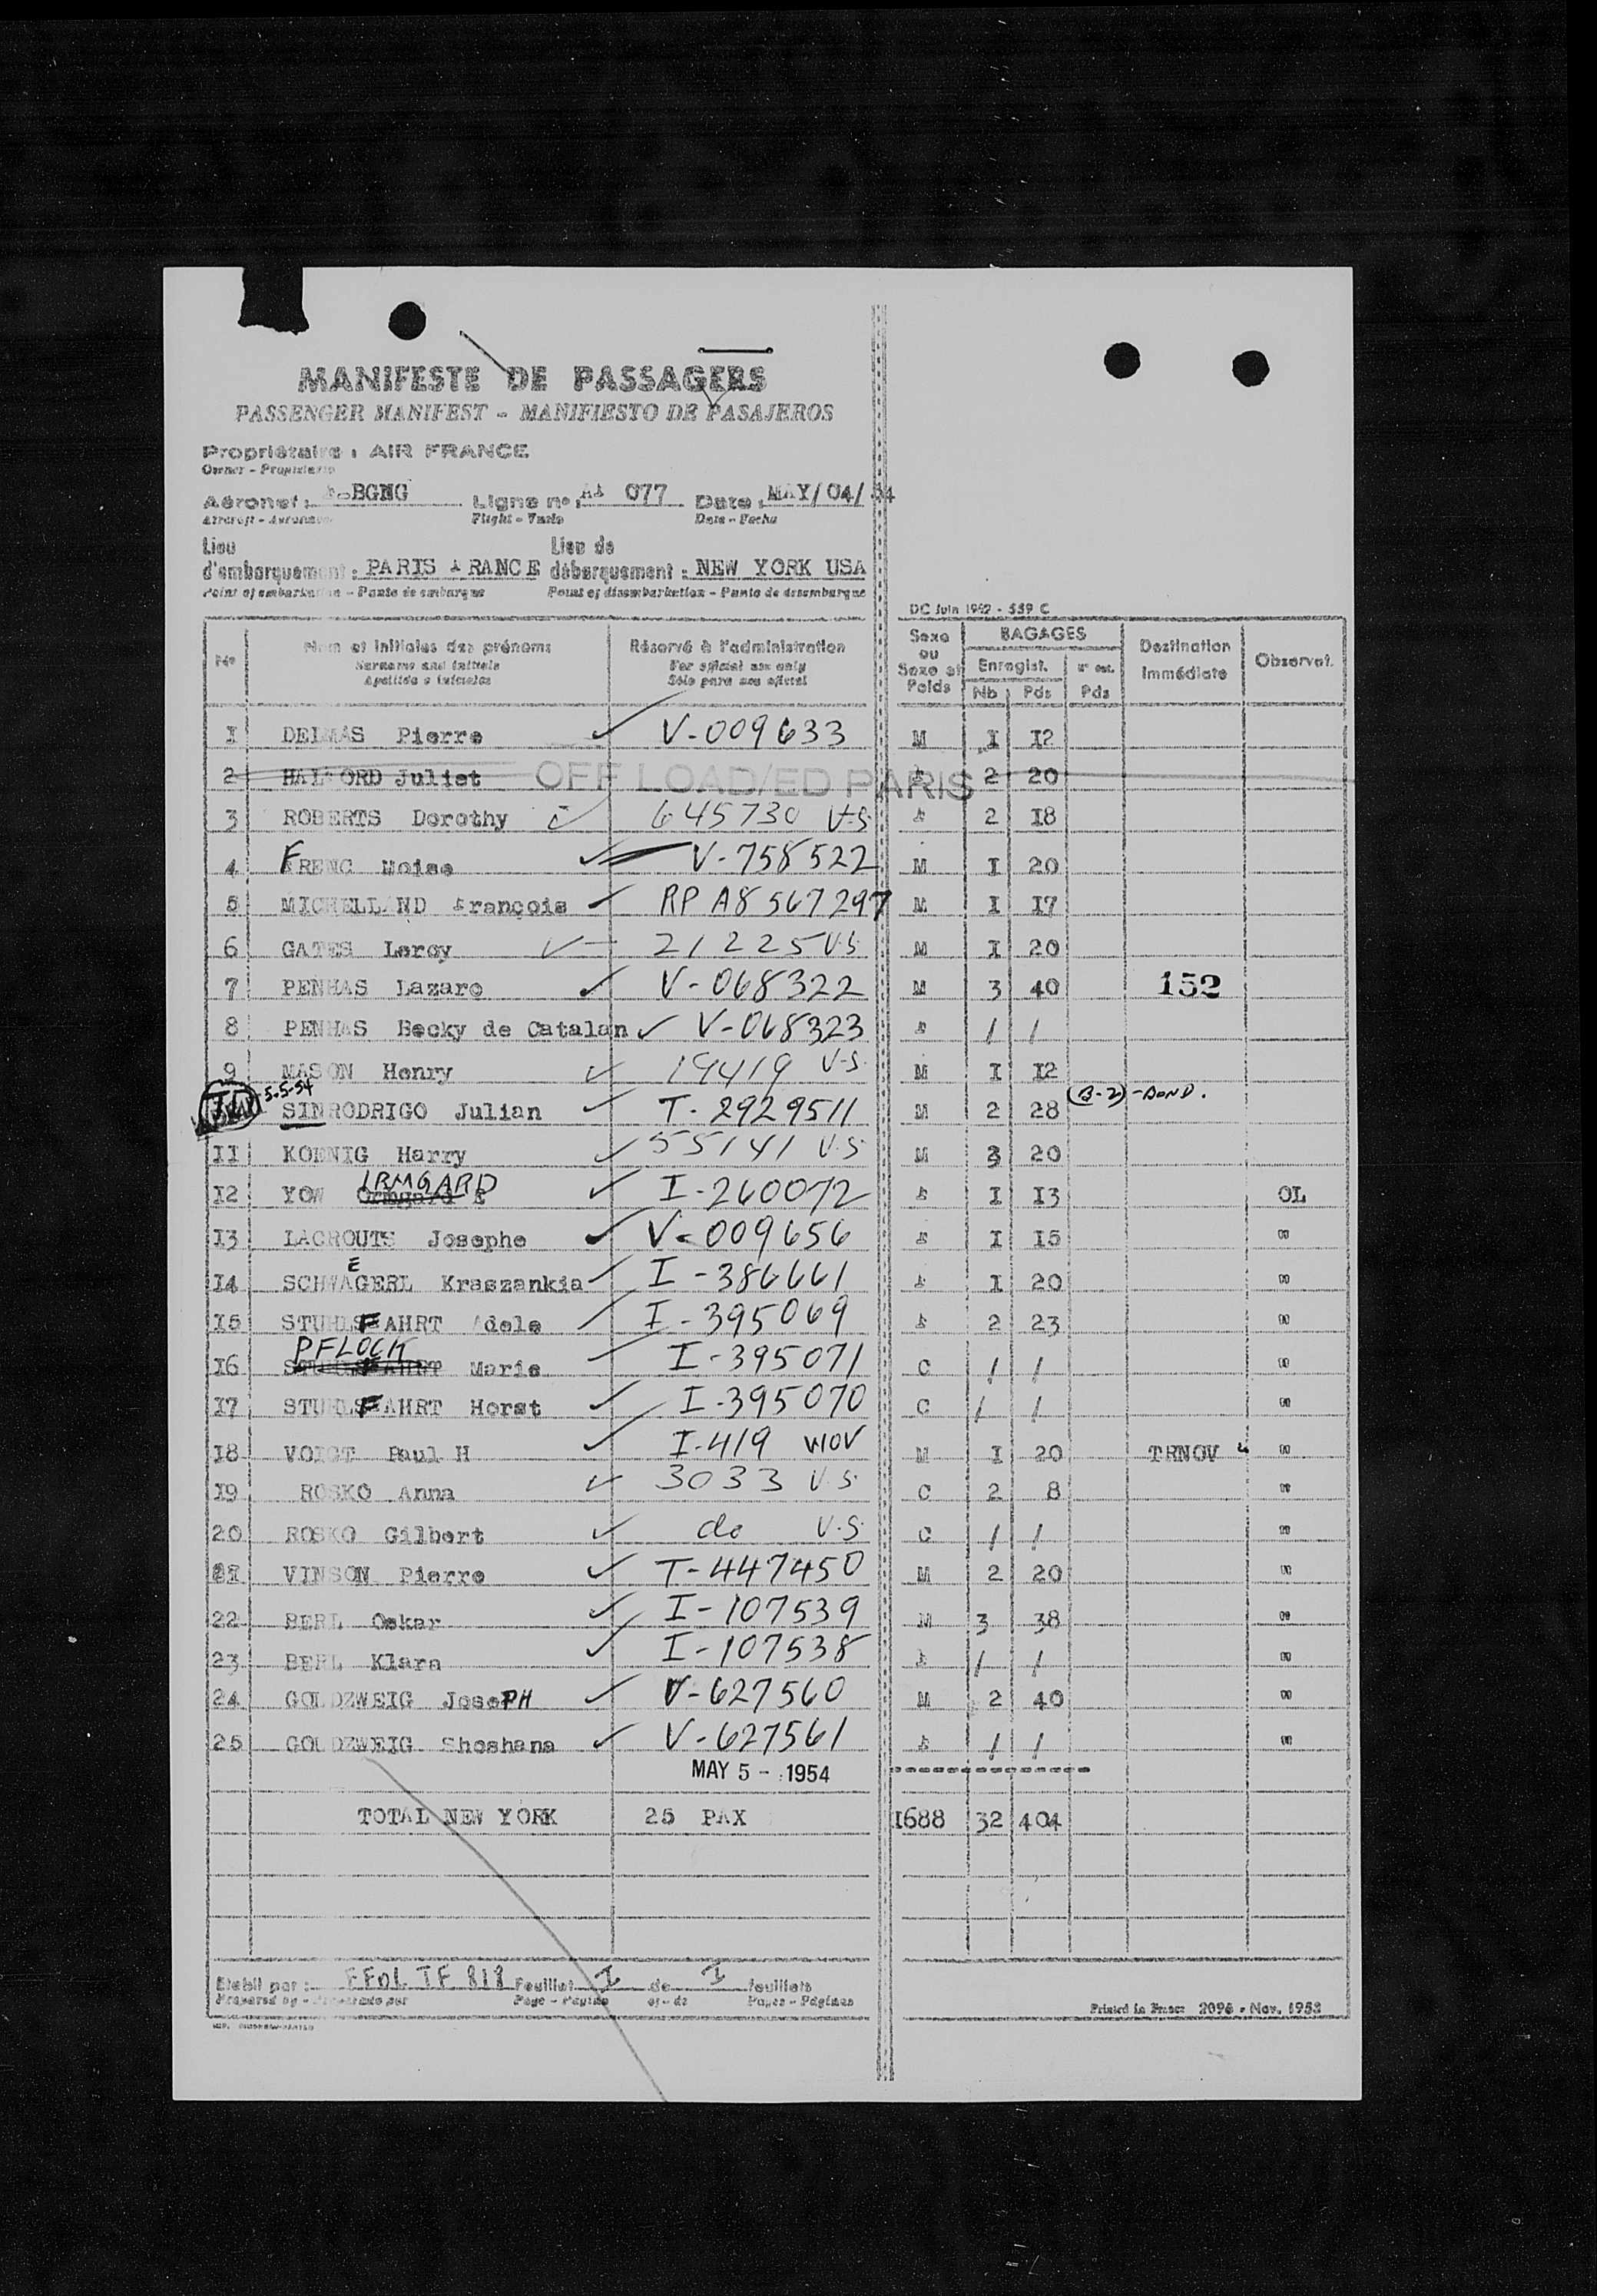 MANIFESTE DE PASSAGERS
PASSENGER MANIFEST - MANIFIESTO DE PASAJEROS
Propriétaire : AIR FRANCE
Owner - Propietario
Aéronef : BGNG Ligne n° : AF 077 Date : MAY/04/54
Aircraft - Aeronave Flight - Vuelo Date - Fecha
Lieu d'embarquement : PARIS FRANCE Lieu de débarquement : NEW YORK USA
Point of embarkation - Punto de embarque Point of disembarkation - Punto de desembarque
DC Juin 1952 - 559 C
N° Nom et initiales des prénoms Réservé à l'administration Sexe ou Sexe et Poids BAGAGES Destination Immédiate Observat.
Surname and initials For official use only Enregist.
Apellido e iniciales Sólo para uso oficial Nb Pds Pds
1 DELMAS Pierre V-009633 M I I2
2 HALFORD Juliet OFF LOAD/ED PARIS F 2 20
3 ROBERTS Dorothy 645730 U.S. F 2 I8
4 FRENC Moise V-758522 M I 20
5 MICHELLAND François RP A8 567297 M I I7
6 GATES Leroy 21225 U.S. M I 20
7 PENHAS Lazare V-068322 M 3 40 152
8 PENHAS Becky de Catalan V-068323 F / /
9 MASON Henry 19419 U.S. M I I2
5-5-54 SINRODRIGO Julian T-2929511 M 2 28 (B-2)-BOND.
II KOENIG Harry 55141 U.S. M 3 20
I2 YOW Ormgard E IRMGARD I-260072 F I I3 OL
I3 LACROUTS Josephe V-009656 F I I5 "
I4 SCHWAGERL E Kraszankia I-386661 F I 20 "
I5 STUHLSFAHRT Adele I-395069 F 2 23 "
I6 PFLOCK Marie I-395071 C / / "
I7 STUHLSFAHRT Horst I-395070 C / / "
I8 VOIGT Paul H I-419 WOV M I 20 TRNOV "
I9 ROSKO Anna 3033 U.S. C 2 8 "
20 ROSKO Gilbert do U.S. C / / "
2I VINSON Pierre T-447450 M 2 20 "
22 BERL Oskar I-107539 M 3 38 "
23 BERL Klara I-107538 F / / "
24 GOLDZWEIG JosePH V-627560 M 2 40 "
25 GOLDZWEIG Shoshana V-627561 F / / "
MAY 5 - 1954
TOTAL NEW YORK 25 PAX I688 32 404
Etabli par : Feuillet I de I feuillets
Prepared by - Preparado por Page - Página of - de Pages - Páginas
Printed in France 2096 - Nov. 1953